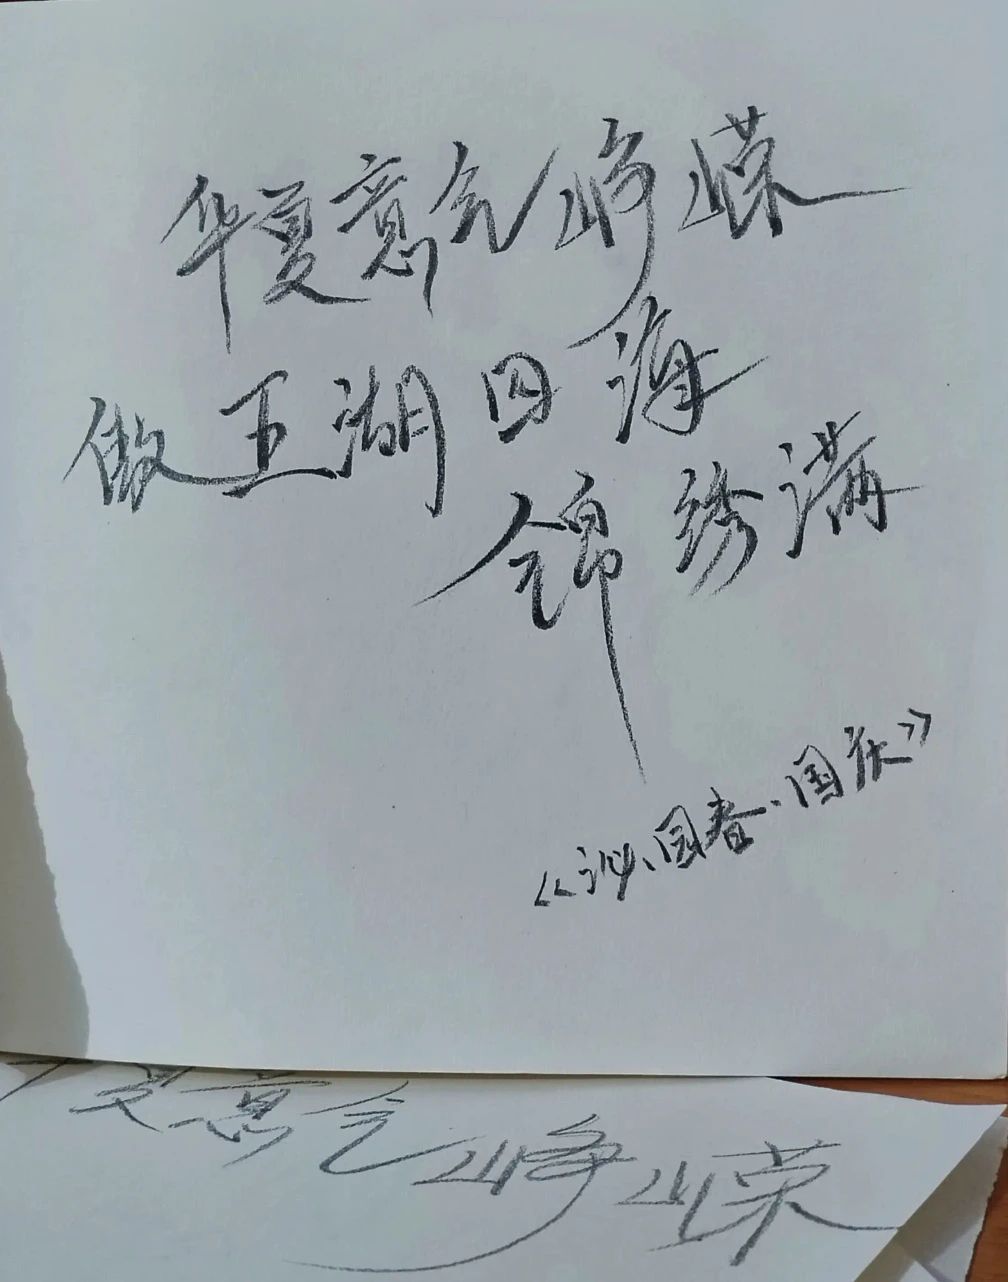 华夏意气峥嵘
傲五湖四海
锦绣满
《沁园春·国庆》
夏意气峥嵘